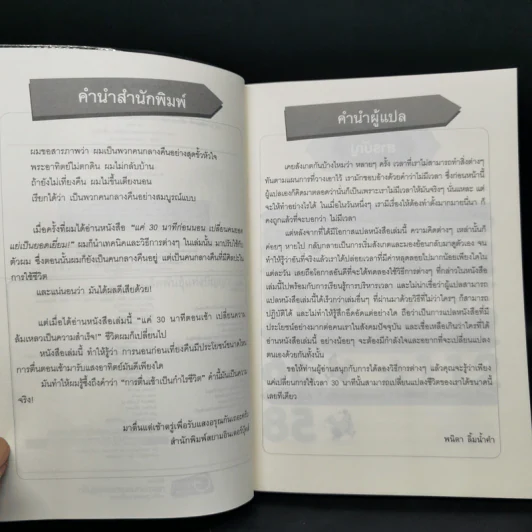 คำนำสำนักพิมพ์
ผมขอสารภาพว่า ผมเป็นพวกคนกลางคืนอย่างสุดขั้วหัวใจ
พระอาทิตย์ไม่ตกดิน ผมไม่กลับบ้าน
ถ้ายังไม่เที่ยงคืน ผมไม่ขึ้นเตียงนอน
เรียกได้ว่า เป็นพวกคนกลางคืนอย่างสมบูรณ์แบบ
เมื่อครั้งที่ผมได้อ่านหนังสือ "แค่ 30 นาทีก่อนนอน เปลี่ยนคนยอด
แย่เป็นยอดเยี่ยม!" ผมก็นำเทคนิคและวิธีการต่างๆ ในเล่มนั้น มาปรับใช้กับ
ตัวผม ซึ่งตอนนั้นผมก็ยังเป็นคนกลางคืนอยู่ แต่เป็นคนกลางคืนที่มีศิลปะใน
การใช้ชีวิต
และแน่นอนว่า มันได้ผลดีเสียด้วย!
แต่เมื่อได้อ่านหนังสือเล่มนี้ "แค่ 30 นาทีตอนเช้า เปลี่ยนความ
ล้มเหลวเป็นความสำเร็จ!" ชีวิตผมก็เปลี่ยนไป
หนังสือเล่มนี้ ทำให้รู้ว่า การนอนก่อนเที่ยงคืนมีประโยชน์ขนาดไหน
การตื่นเช้ามารับแสงอาทิตย์มันดีเพียงใด
มันทำให้ผมรู้ซึ้งถึงคำว่า "การตื่นเช้าเป็นกำไรชีวิต" คำนี้มันเป็นความ
จริง!
มาตื่นแต่เช้าตรู่เพื่อรับแสงอรุณกันเถอะครับ
สำนักพิมพ์สยามอินเตอร์บุ๊คส์
คำนำผู้แปล
เคยสังเกตกันบ้างไหมว่า หลายๆ ครั้ง เวลาที่เราไม่สามารถทำสิ่งต่างๆ
ทันตามแผนการที่วางเอาไว้ เรามักชอบอ้างด้วยคำว่าไม่มีเวลา ซึ่งก่อนหน้านี้
ผู้แปลเองก็คิดมาตลอดว่านั่นก็เป็นเพราะเราไม่มีเวลาให้มันจริงๆ นั่นแหละ แต่
จะให้ทำอย่างไรได้ ในเมื่อในวันหนึ่งๆ เรามีเรื่องให้ต้องทำตั้งมากมายนี่นา ก็
คงถูกแล้วที่จะบอกว่า ไม่มีเวลา
แต่หลังจากที่ได้มีโอกาสแปลหนังสือเล่มนี้ ความคิดต่างๆ เหล่านั้นก็
ค่อยๆ หายไป กลับกลายเป็นการเริ่มสังเกตและมองย้อนกลับมาดูตัวเอง จน
ทำให้รู้ว่าอันที่จริงแล้วเราได้ปล่อยเวลาที่มีค่าหลุดลอยไปมากน้อยเพียงใดใน
แต่ละวัน เลยถือโอกาสอันดีที่จะได้ทดลองใช้วิธีการต่างๆ ที่กล่าวในหนังสือ
เล่มนี้ไปพร้อมกับการเรียนรู้การบริหารเวลา และไม่น่าเชื่อว่าผู้แปลสามารถ
แปลหนังสือเล่มนี้ได้เร็วกว่าเล่มอื่นๆ ที่ผ่านมาด้วยวิธีที่ไม่ว่าใครๆ ก็สามารถ
ปฏิบัติได้ และไม่ทำให้รู้สึกอึดอัดแต่อย่างใด ถือว่าเป็นการแปลหนังสือที่มี
ประโยชน์อย่างมากต่อคนเราในสังคมปัจจุบัน และเชื่อเหลือเกินว่าใครที่ได้
อ่านหนังสือเล่มนี้ อย่างน้อยๆ จะต้องมีกำลังใจและอยากที่จะเปลี่ยนแปลง
ตนเองด้วยกันทั้งนั้น
ขอให้ท่านผู้อ่านสนุกกับการได้ลองวิธีการต่างๆ แล้วคุณจะรู้ว่าเพียง
แค่เปลี่ยนการใช้เวลา 30 นาทีนั้นสามารถเปลี่ยนแปลงชีวิตของเราได้ขนาดนี้
เลยทีเดียว
พนิดา ลิ้มน้ำคำ